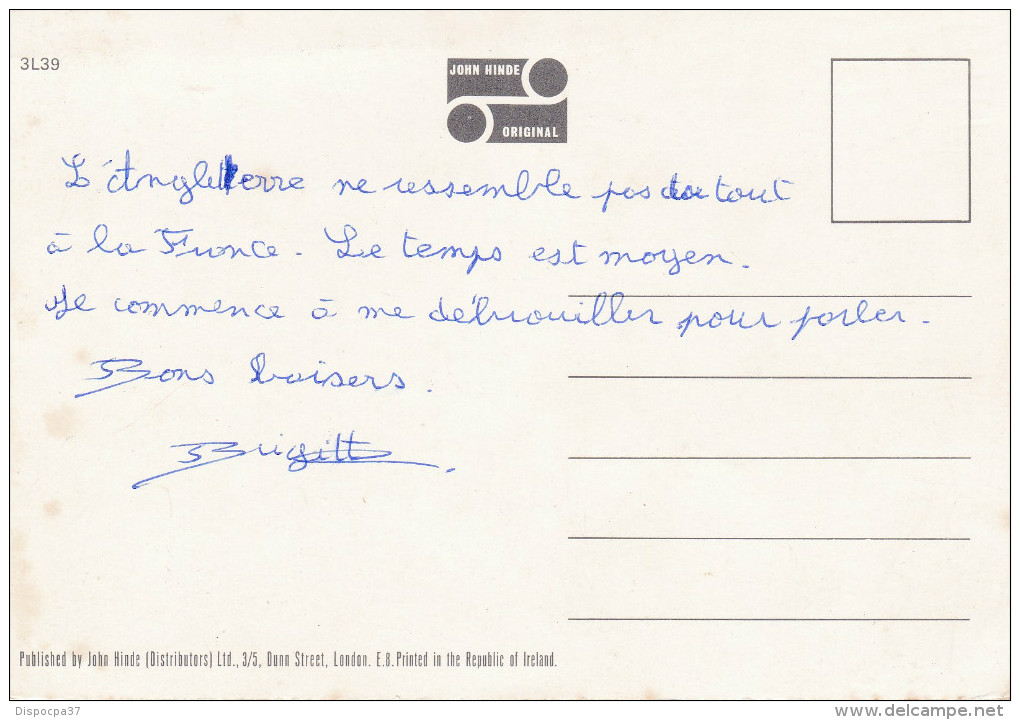 3L39
JOHN HINDE
ORIGINAL
L'Angleterre ne ressemble pas du tout
à la France. Le temps est moyen.
Je commence à me débrouiller pour parler.
Bons baisers.
Brigitte
Published by John Hinde (Distributors) Ltd., 3/5, Dunn Street, London. E.8. Printed in the Republic of Ireland.
Dispocpa37
www.delcampe.net